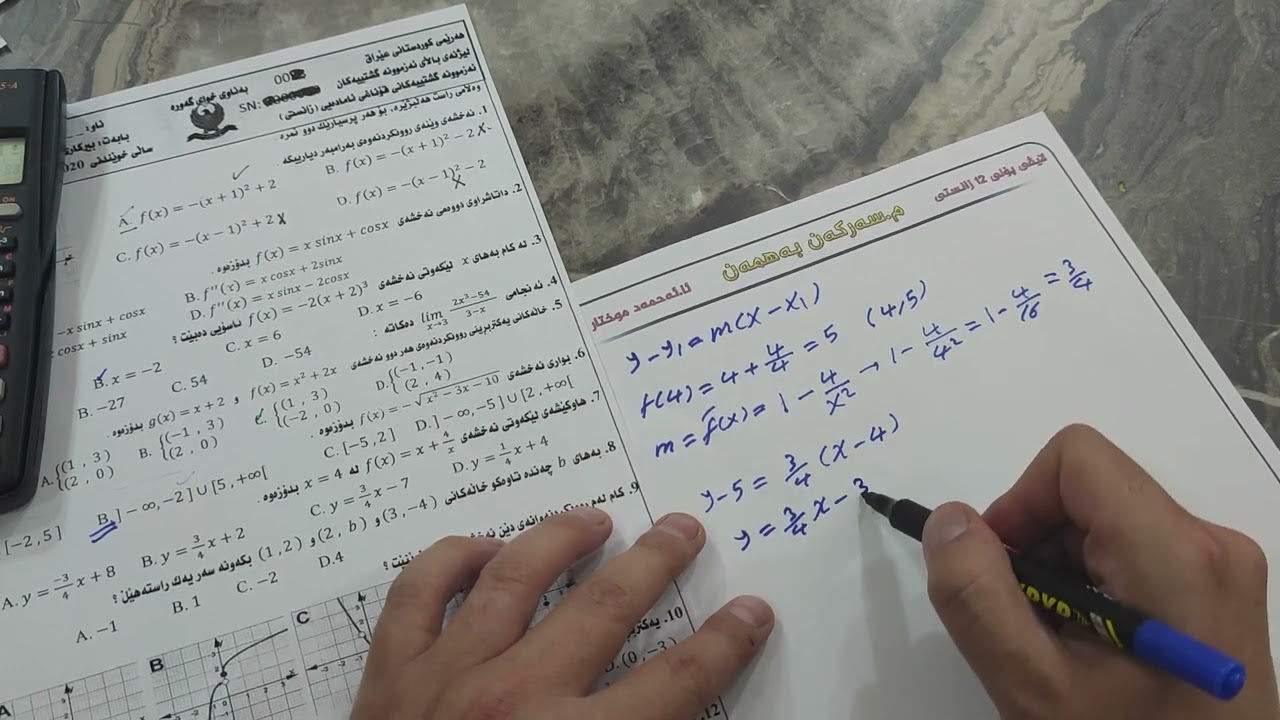 هەرێمی کوردستانی عێراق
لیژنەی باڵای ئەزموونە گشتییەکان
ئەزموونە گشتییەکانی قۆناغی ئامادەیی ( زانستی )
بەناوی خوای گەورە
SN:
00
ناو:
سالی خوێندنی 2020
وەڵامی راست هەڵبژێرە، بۆ هەر پرسیارێك دوو نمرە
1. نەخشەی وێنەی روونکردنەوەی بەرامبەر دیاریبکە
A. f(x) = −(x + 1)² + 2
B. f(x) = −(x + 1)² − 2 X
C. f(x) = −(x − 1)² + 2 X
D. f(x) = −(x − 1)² − 2
X
2. داتاشراوی دووەمی نەخشەی f(x) = x sinx + cosx بدۆزەوە .
−x sinx + cosx
B. f''(x) = x cosx + 2sinx
x cosx + sinx
D. f''(x) = x sinx − 2cosx
3. لە کام بەهای x لێکەوتی نەخشەی f(x) = −2(x + 2)³ ئاسۆیی دەبێت ؟
B. x = −2
C. x = 6
D. x = −6
4. ئەنجامی lim x→3 2x³−54 / 3−x دەکاتە :
B. −27
C. 54
D. −54
5. خاڵەکانی یەکتربڕینی روونکردنەوەی هەر دوو نەخشەی f(x) = x² + 2x و g(x) = x + 2 بدۆزەوە .
A. {(1 , 3) (2 , 0)
B. {(−1 , 3) (2 , 0)
C. {(1 , 3) (−2 , 0)
D. {(−1, −1) (2 , 4)
6. بواری نەخشەی f(x) = −√x² − 3x − 10 بدۆزەوە .
[−2 , 5]
B. ]−∞, −2] ∪ [5, +∞[
C. [−5 , 2]
D. ]−∞, −5] ∪ [2, +∞[
7. هاوکێشەی لێکەوتی نەخشەی f(x) = x + 4/x لە x = 4 بدۆزەوە.
A. y = −3/4 x + 8
B. y = 3/4 x + 2
C. y = 3/4 x − 7
D. y = 1/4 x + 4
8. بەهای b چەندە تاوەکو خاڵەکانی (3, −4) و (2, b) و (1, 2) بکەونە سەر یەك راستەهێڵ ؟
A. −1
B. 1
C. −2
D. 4
9. کام لەم
A
B
C
10.
D. (0 , −3)
12.
لایڤی پۆلی 12 زانستی
م.سەرکەن بەهمەن
ئا.ئەحمەد موختار
y − y₁ = m(x − x₁)
f(4) = 4 + 4/4 = 5 (4,5)
m = f̄(x) = 1 − 4/x² → 1 − 4/4² = 1 − 4/16 = 3/4
y − 5 = 3/4 (x − 4)
y = 3/4 x − 3